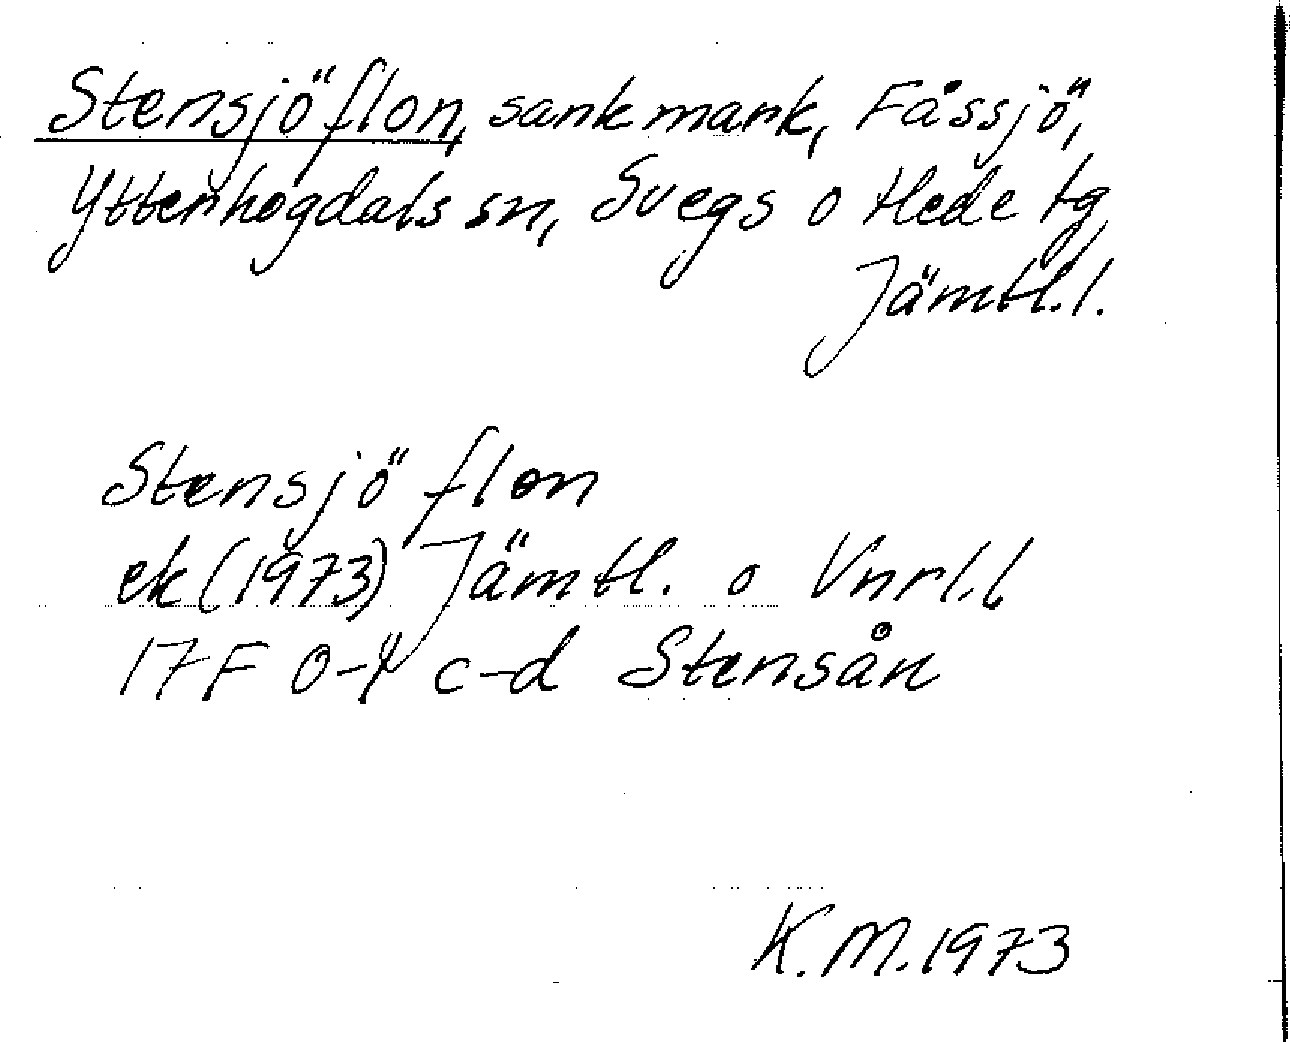 Stensjöflon, sankmark, Fåssjö,
Ytterhogdals sn, Svegs o Hede tg
Jämtl.l.
Stensjöflon
ek (1973) Jämtl. o Vnrl.l
17F 0-1 c-d Stensån
K.M. 1973